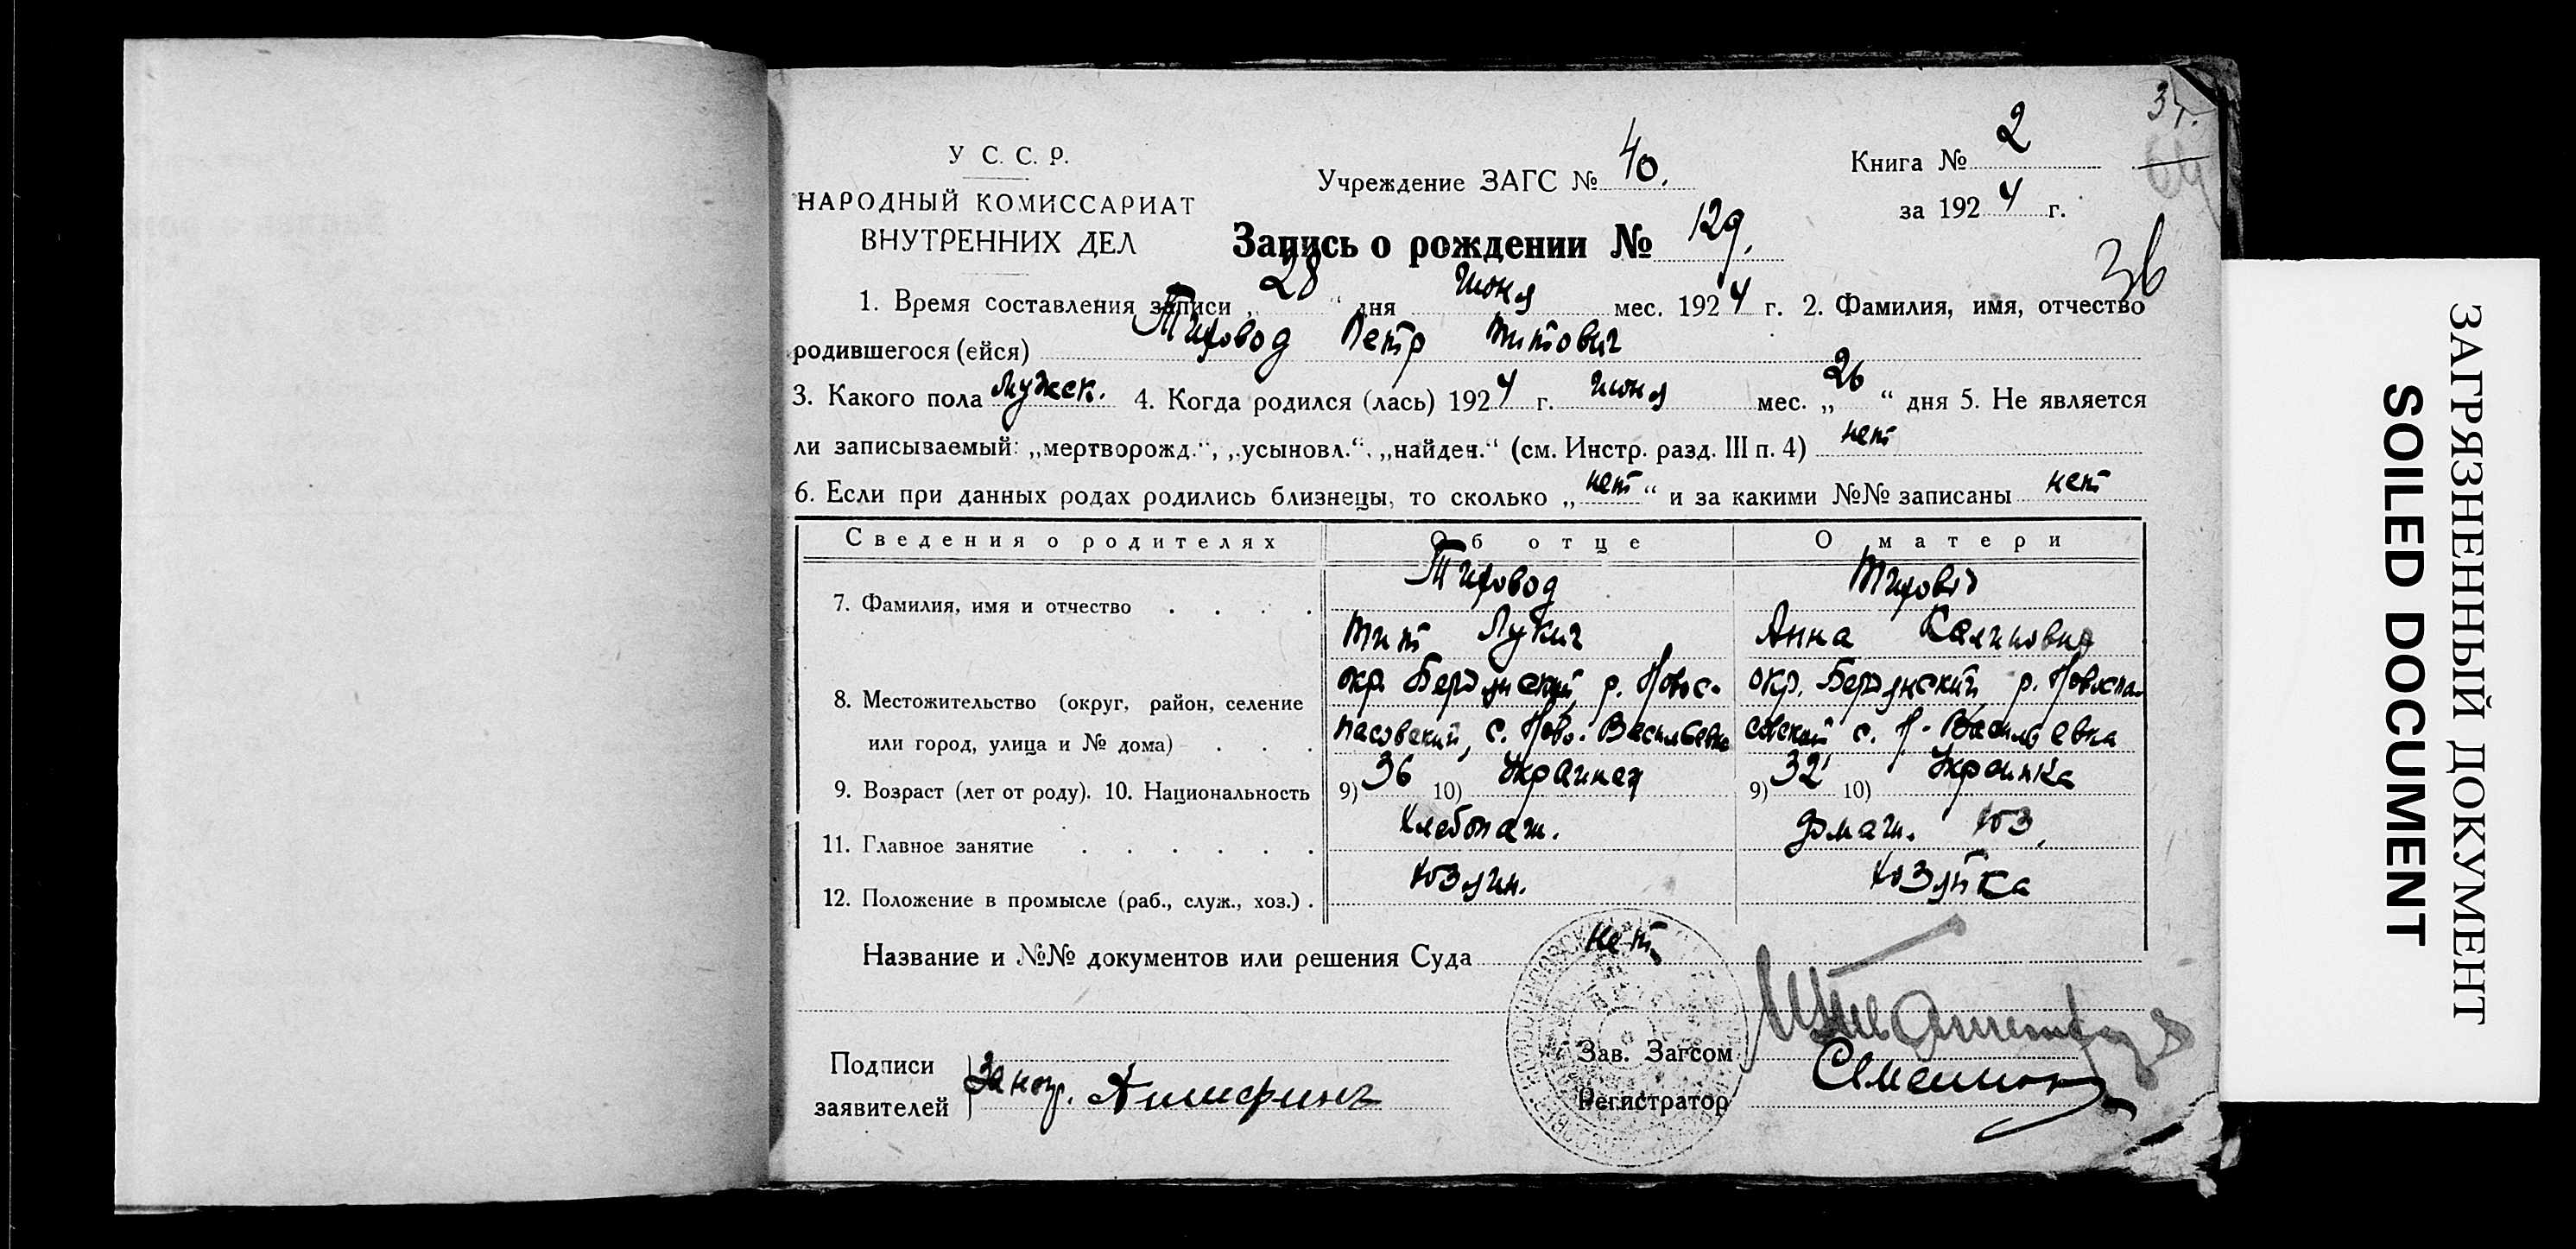 У С. С. Р.
НАРОДНЫЙ КОМИССАРИАТ
ВНУТРЕННИХ ДЕЛ
Учреждение ЗАГС № 40.
Книга № 2
за 1924 г.
36
Запись о рождении № 129.
1. Время составления записи „28“ дня июня мес. 1924 г. 2. Фамилия, имя, отчество
родившегося (ейся) Петр Титович
3. Какого пола мужск. 4. Когда родился (лась) 1924 г. июня мес. „26“ дня 5. Не является
ли записываемый: „мертворожд.“, „усыновл.“, „найден.“ (см. Инстр. разд. III п. 4) нет
6. Если при данных родах родились близнецы, то сколько „нет“ и за какими №№ записаны нет
Сведения о родителях Об отце О матери
7. Фамилия, имя и отчество
Тит Лукич Анна Калиновна
окр. Бердянский, р. Новос- окр. Бердянский, р. Новоспа-
8. Местожительство (округ, район, селение
или город, улица и № дома)
пасовский, с. Ново-Васильевка совский с. Н-Васильевка
9. Возраст (лет от роду). 10. Национальность 9) 36 10) Украинец 9) 32 10) Украинка
11. Главное занятие хлебопаш. домаш. хоз.
12. Положение в промысле (раб., служ., хоз.) хозяин. хозяйка
Название и №№ документов или решения Суда нет
Подписи
заявителей
За негр.
Зав. Загсом
Регистратор
ЗАГРЯЗНЕННЫЙ ДОКУМЕНТ
SOILED DOCUMENT